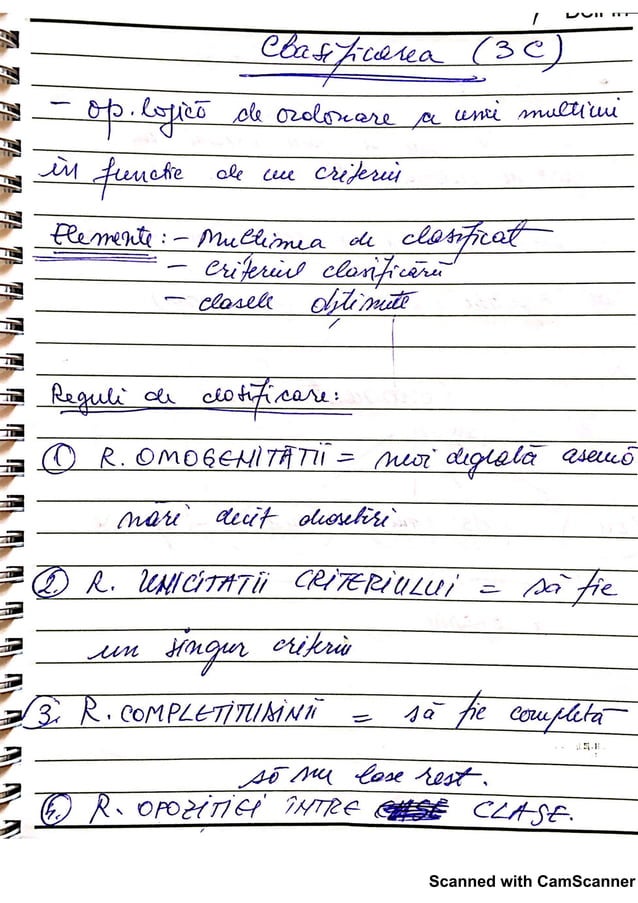 Clasificarea (3C)
- op. logică de ordonare a unei multimi
in functie de un criteriu
Elemente: - Multimea de clasificat
- criteriul clasificării
- clasele obtinute
Reguli de clasificare:
① R. OMOGENITATII = asemă
nări decit deosebiri
② R. UNICITATII CRITERIULUI = să fie
un singur criteriu
3. R. COMPLETITUDINII = să fie completă
să nu lase rest.
4. R. OPOZITIEI INTRE CLASE.
Scanned with CamScanner